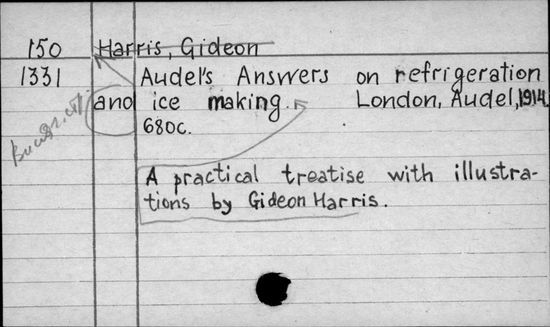 150 Harris, Gideon
1331 Audel's Answers on refrigeration
and ice making. London, Audel, 1914.
680c.
A practical treatise with illustra-
tions by Gideon Harris.